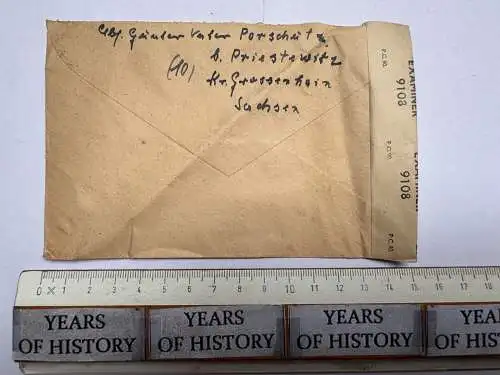 Porschütz
b. Priestewitz
(10)
Kr. Grossenhain
Sachsen
P.C.90.
EXAMINER
9108
P.C.90.
EXAMINER
9108
P.C.90.
0 1 2 3 4 5 6 7 8 9 10 11 12 13 14 15 16 17 18
YEARS OF HISTORY YEARS OF HISTORY YEARS OF HISTORY YEARS OF HISTORY